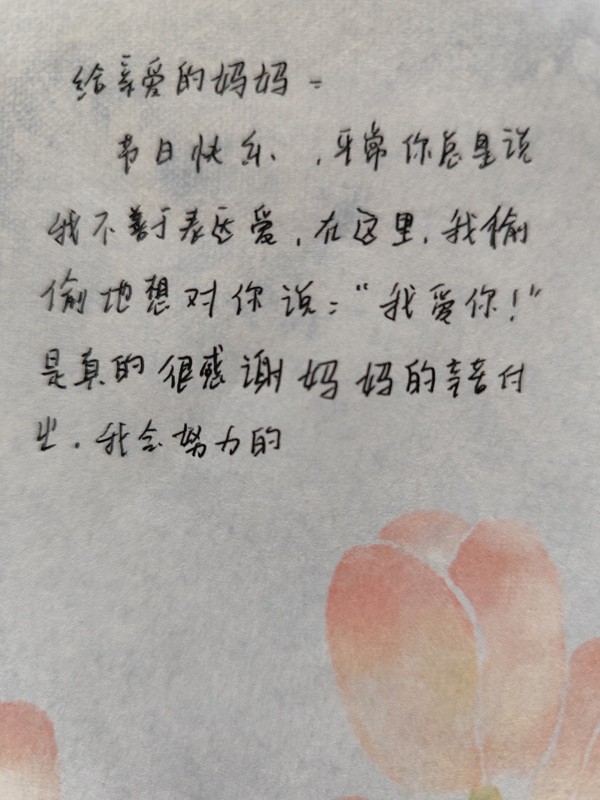 给亲爱的妈妈：
节日快乐、,平常你总是说
我不善于表达爱,在这里,我偷
偷地想对你说：“我爱你！”
是真的很感谢妈妈的辛苦付
出.我会努力的